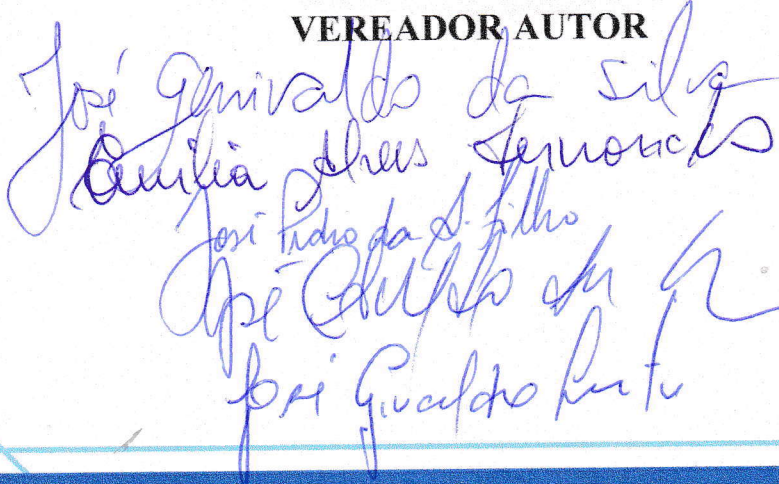 VEREADOR AUTOR
José Genivaldo da Silva
Emilia Alves Fernandes
José Pedro da S. Filho
José
José Givaldo